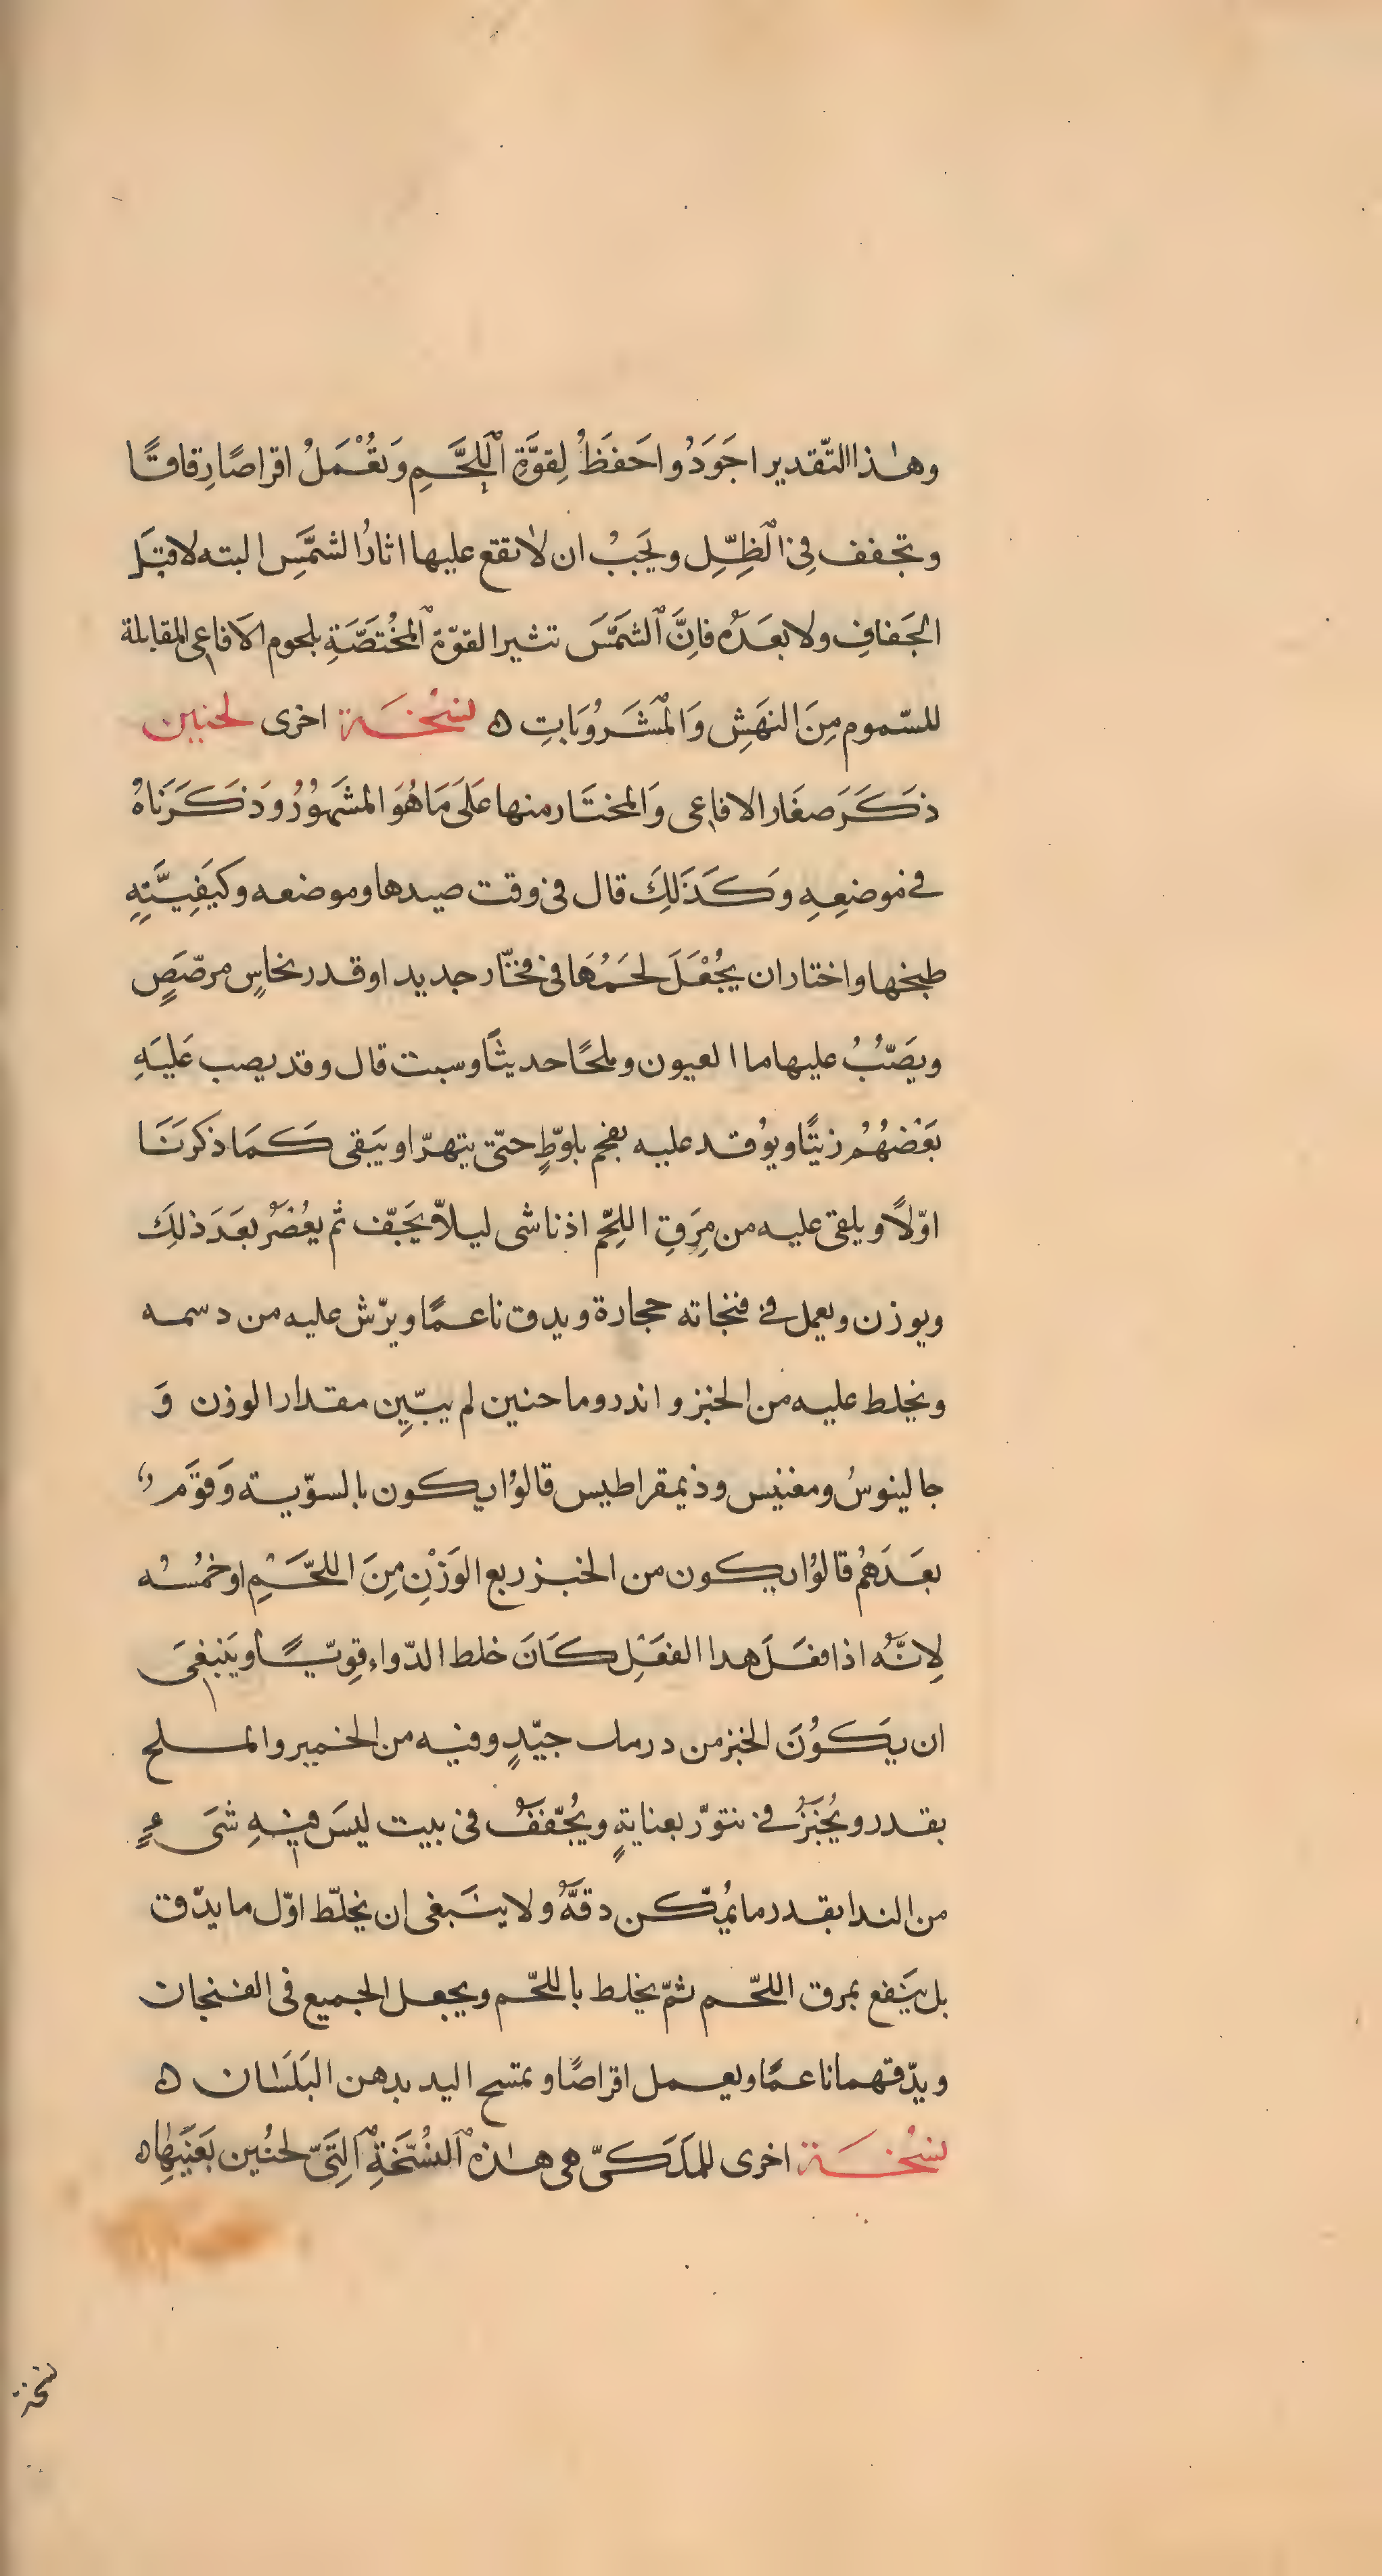 وهٰذا التّقدير اجَوَدُ واحَفَظُ لِقوَّةِ اَللَّحَّمِ وَتعُمَلُ اقراصًا رِقاقًا
وتجفف فِي الظِّلِّ ويَجَبُ ان لا تقع عليها اثارُ الشَّمَّسِ البته لا قبَل
الجَفافِ ولا بعَدَهُ فاِنَّ الشَمَّسَ تشير القوّة المخُتَصَّةِ بلحوم الاَفاعى المقابلة
للسّموم مِنَ النهَشِ وَالمَشَرُوَباتِ ه نسُخَة اخرى لحنين
ذكَرَ صغَار الافاعى وَالمختَار منها عَلَى مَا هُوَ المشَهوُرُ وَذكَرَنَاهُ
في موضعِهِ وكَذَلِكَ قال في وقت صيدها وموضعه وكيَفِيَّتِهِ
طبخها واختار ان يجُعَلَ لحَمُهَا في فخّار جديد او قدر نحاسٍ مرصّصٍ
ويصَبُّ عليها ما العيون وملحًا حديثًا وسبت قال وقد يصب عَليَهِ
بعَضهُمُ زيتًا ويوُقد عليه بفحم بلوّطٍ حتّى يتهرّا ويَبَقى كَمَا ذكرَنَا
اوّلاً ويلقى عليه من مِرَقِ اللحّمِ اذنا شى ليلاّ يجَفّف ثم يعُصَرُ بعَدَ ذلِكَ
ويوزن ويعمل في فنجانه حجارة ويدق ناعمًا ويرّش عليه من دسمه
ويخلط عليه من الخبز واندروما حنين لم يبّيِن مقدار الوزن وَ
جالينوسُ ومغنيس وذيمقراطيس قالوُا يكون بالسوّية وَقوَم
بعَدَهمُ قالوُا يكون من الخبز ربع الوَزنِ مِنَ اللحَّمِ او خمُسُه
لِانَّهُ اذا فعَلَ هدا الفعَلِ كَانَ خلط الدّواء قوِيًّا ويَنبغىَ
ان يكَوُنَ الخبز من درمك جيّدٍ وفيه من الخمير والملح
بقدر ويُخبَزُ في تنوّر بعنايةٍ ويُجّففُ في بيت ليسَ فيِهِ شَىءٍ
من الندا بقدر ما يمُكّن دقهَُّ ولا ينَبغى ان يخلّط اوّل ما يدّق
بل ينَقع بمرق اللحّم ثمّ يخلط باللحّم ويجعل الجميع في الفنجان
ويدّقهما ناعمًا ويعمل اقراصًا وتمسح اليد بدهن البَلَسَان ه
نسُخَة اخرى للمَلَكىّ هى هٰذه النسُّخَةِ التِّىَ لحنُين بعَيَنِها ه
نسخة